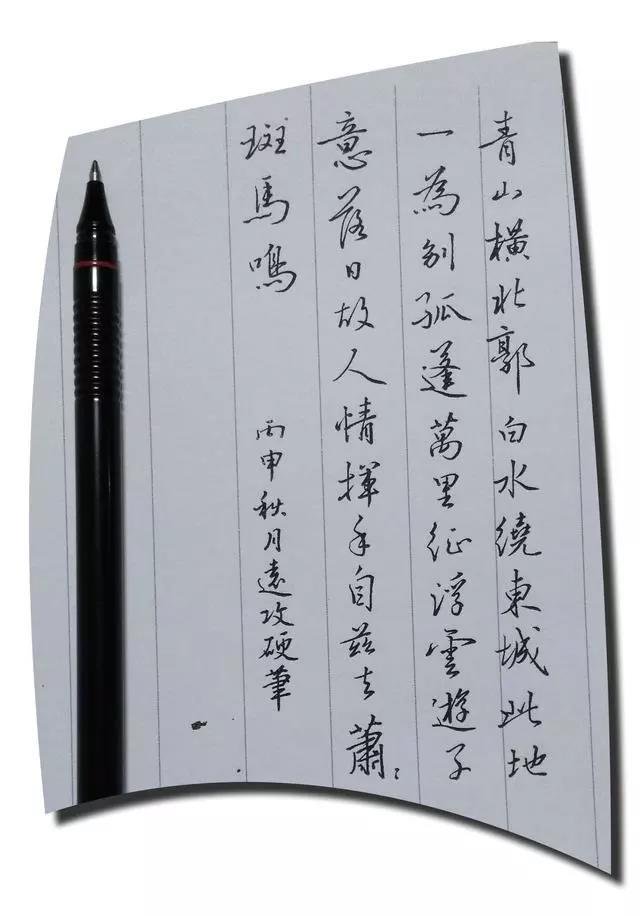 青山橫北郭白水繞東城此地
一為別孤蓬萬里征浮雲遊子
意落日故人情揮手自茲去蕭〻
斑馬鳴
丙申秋月遠攻硬筆